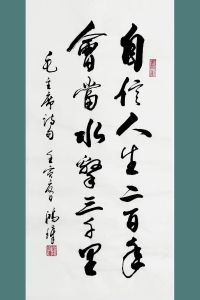 自信人生二百年
會當水擊三千里
毛主席詩句 壬寅夏日 鴻緯